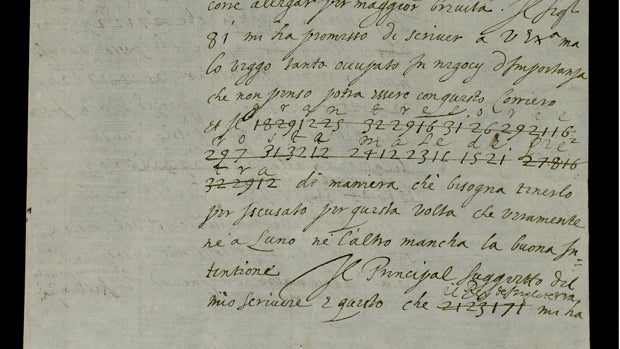 corre allegar per maggior brevità. Il sig.r
81 mi ha promesso di scriver a V. Exª ma
lo veggo tanto occupato in negocy d'Importanza
che non penso potrà essere con questo Corriero
g r a n t r e s o r e
et Il 18291225 3229163126292116
s t a m a l e d i pie
297 313212 24122316 1521 27816
t r a
322912 di maniera che bisogna tenerlo
per iscusato per questa volta che veramente
nè a l'uno nè l'altro mancha la buona in=
tentione. Il Principal suggetto del
il Re de Inglaterra
mio scrivere è questo che 2123171 mi ha